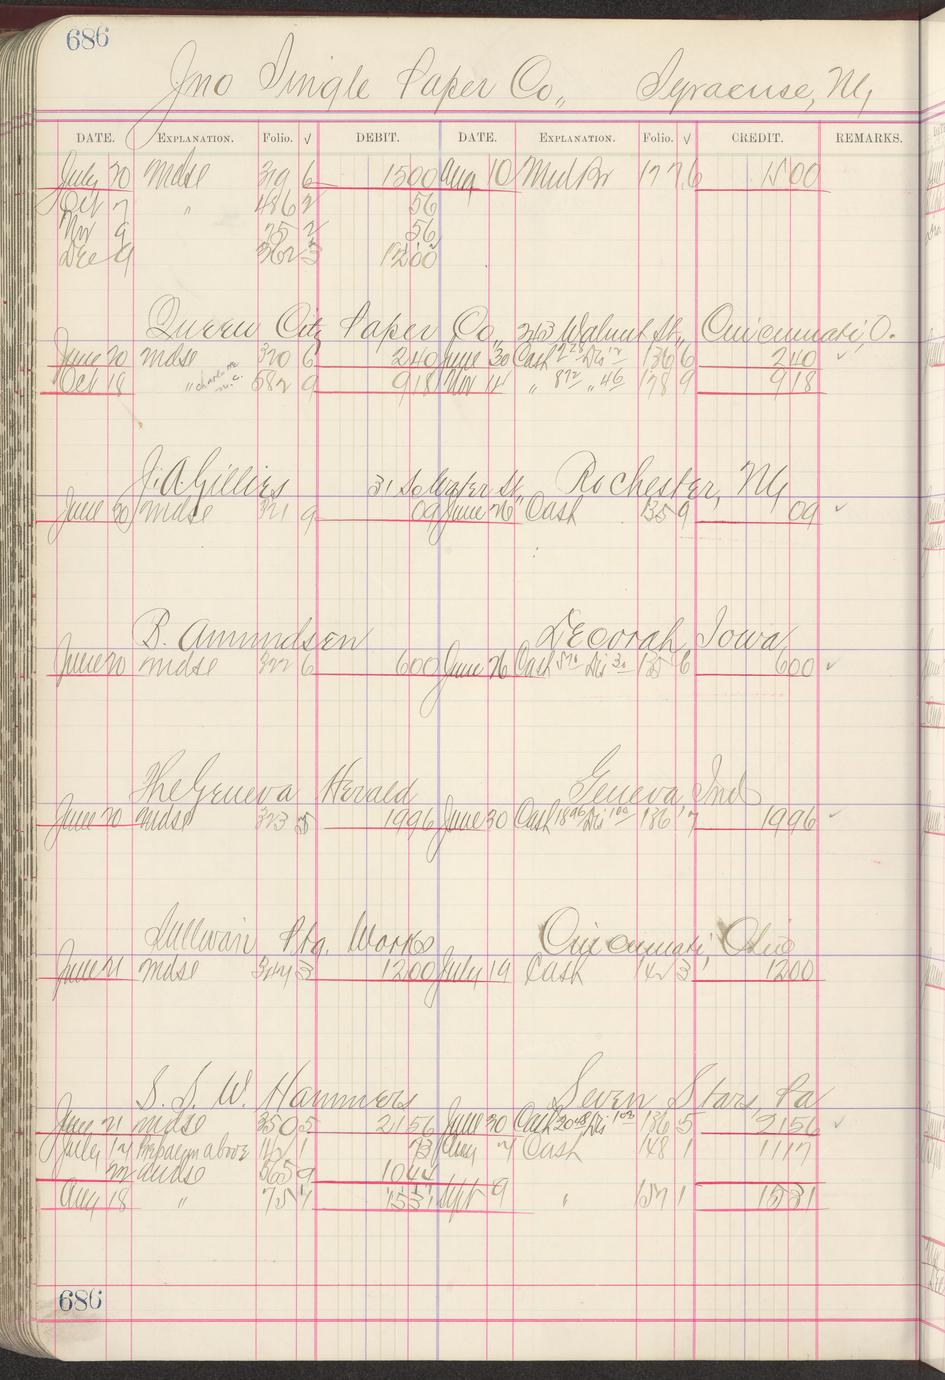 686
Jno Single Paper Co., Syracuse, NY,
DATE. EXPLANATION. Folio. √ DEBIT. DATE. EXPLANATION. Folio. √ CREDIT. REMARKS.
July 20 Mdse 319 6 1500 Aug 10 177 6 1500
Oct 7 " 486 2 56
Nov 9 75 2 56
Dec 9 362 3 1200
Queen City Paper Co., 243 Walnut St., Cincinnati, O.
June 20 Mdse 320 6 240 June 30 Cash Dis 12 136 6 240 ✓
Oct 18 " 582 9 918 Nov 11 " 872 " 46 178 9 918
J. A Gillies 31 So Water St, Rochester, NY
June 20 Mdse 321 9 09 June 26 Cash 135 9 09 ✓
B. Amundsen Decorah, Iowa
June 20 Mdse 322 6 600 June 26 Cash 570 Dis 30 135 6 600 ✓
The Geneva Herald Geneva, Ind
June 20 Mdse 323 5 1996 June 30 Cash 1896 Dis 100 136 7 1996 ✓
Sullivan Ptg. Works Cincinnati, Ohio
June 21 Mdse 344 3 1200 July 19 Cash 142 3 1200
S. S. W. Hammers Seven Stars Pa
June 21 Mdse 350 5 2156 June 30 Cash 2048 Dis 108 136 5 2156 ✓
July 14 Prepaem above 121 1 73 Aug 4 Cash 148 1 1117
22 Mdse 565 9 1044
Aug 18 " 757 1531 Sept 9 " 157 1 1531
686